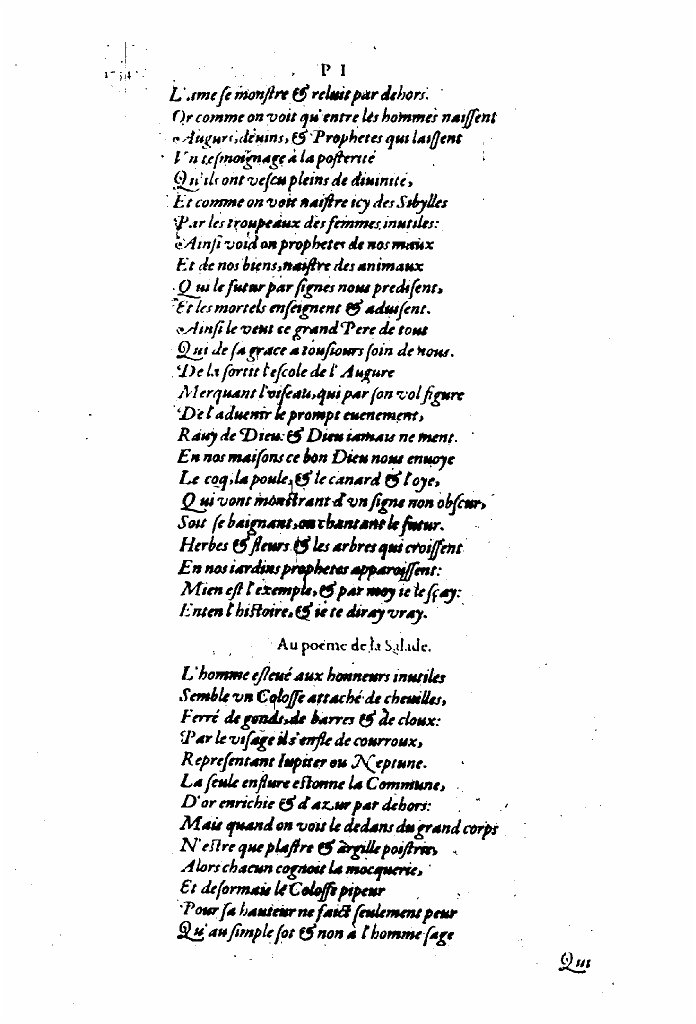 P I
L'ame se monstre & reluit par dehors.
Or comme on voit qu'entre les hommes naissent
Augurs, deuins, & Prophetes qui laissent
Vn tesmoignage à la posterité
Qu'ils ont vescu pleins de diuinité,
Et comme on voit naistre icy des Sibylles
Par les troupeaux des femmes inutiles:
Ainsi void on prophetes de nos maux
Et de nos biens, naistre des animaux
Qui le futur par signes nous predisent,
Et les mortels enseignent & aduisent.
Ainsi le veut ce grand Pere de tous
Qui de sa grace a tousiours soin de nous.
De la sortit l'escole de l'Augure
Merquant l'oiseau, qui par son vol figure
De l'aduenir le prompt euenement,
Rauy de Dieu: & Dieu iamais ne ment.
En nos maisons ce bon Dieu nous enuoye
Le coq, la poule, & le canard & l'oye,
Qui vont monstrant d'vn signe non obscur,
Soit se baignant, ou chantant le futur.
Herbes & fleurs & les arbres qui croissent
En nos iardins prophetes apparoissent:
Mien est l'exemple, & par moy ie le sçay:
Enten l'histoire, & ie te diray vray.
Au poëme de la Salade.
L'homme esleué aux honneurs inutiles
Semble vn Colosse attaché de cheuilles,
Ferré de gonds, de barres & de cloux:
Par le visage il s'enfle de courroux,
Representant Iupiter ou Neptune.
La seule enflure estonne la Commune,
D'or enrichie & d'azur par dehors:
Mais quand on voit le dedans du grand corps
N'estre que plastre & argille poistrie,
Alors chacun cognoit la mocquerie,
Et desormais le Colosse pipeur
Pour sa hauteur ne faict seulement peur
Qu'au simple sot & non à l'homme sage
Qui